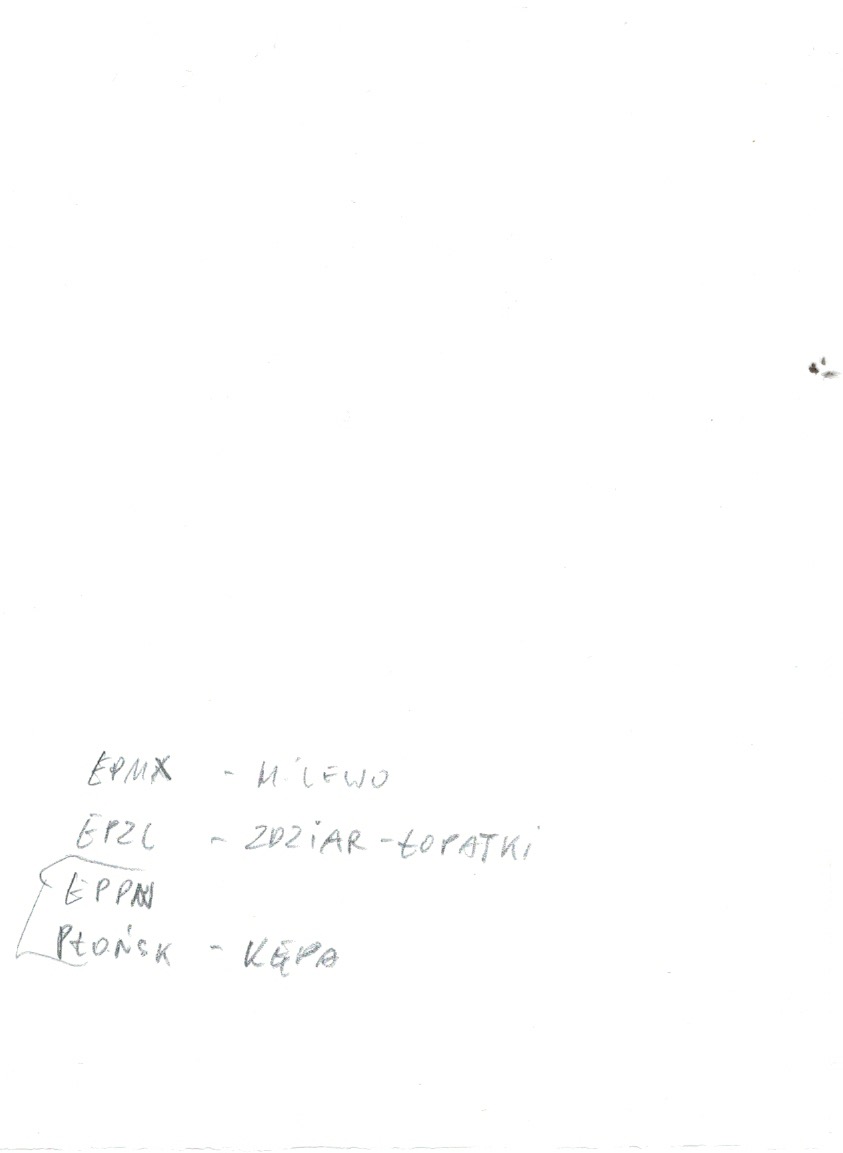 EPMX - MILEWO
EPZL - ZDZiAR-ŁOPATKi
EPPN
PŁOŃSK - KĘPA